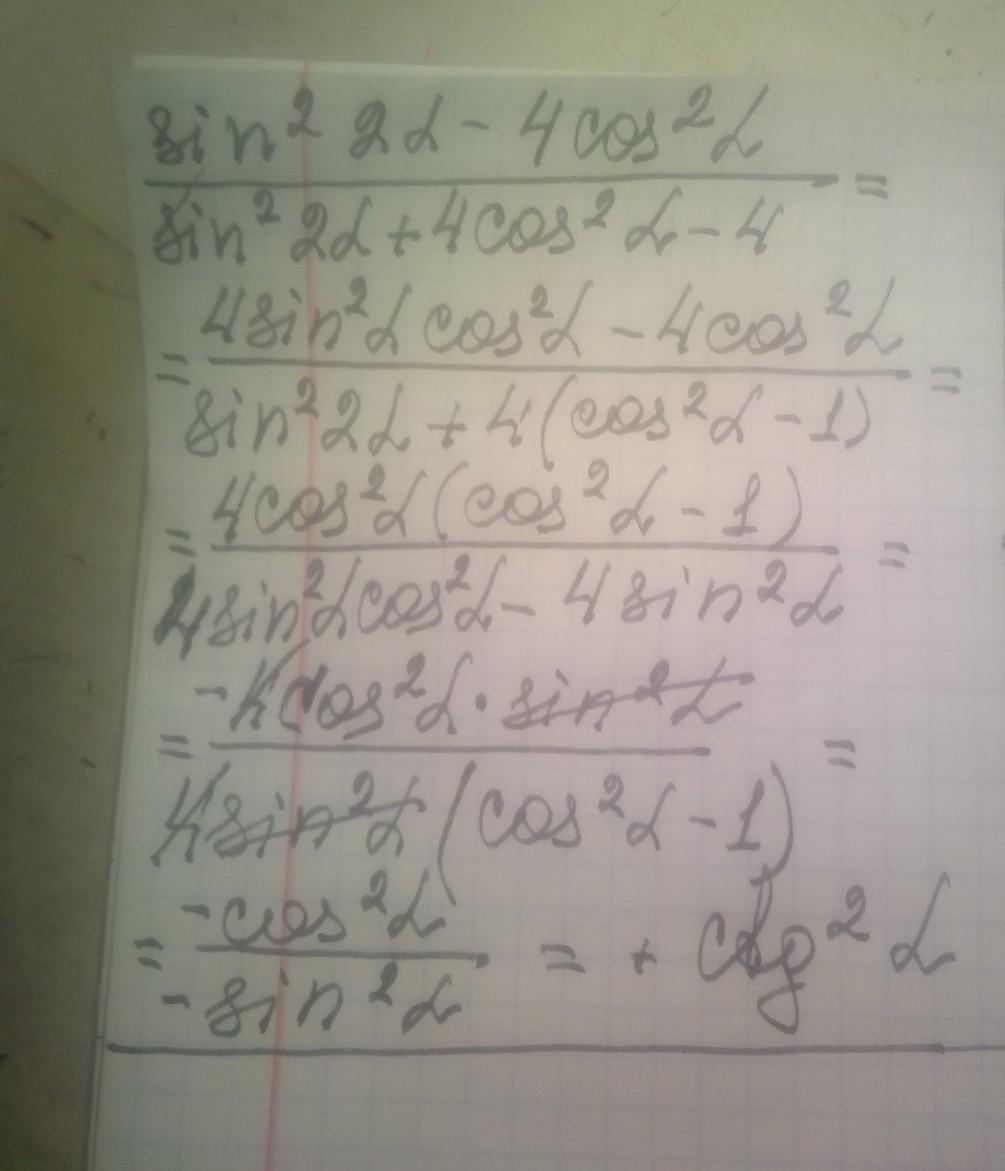 sin² 2α - 4cos²α
=
sin² 2α + 4cos²α - 4
4sin²α cos²α - 4cos²α
= =
sin² 2α + 4(cos²α - 1)
4cos²α(cos²α - 1)
= =
4sin²α cos²α - 4sin²α
-4cos²α · sin²α
= =
4sin²α (cos²α - 1)
-cos²α
= = + ctg²α
-sin²α